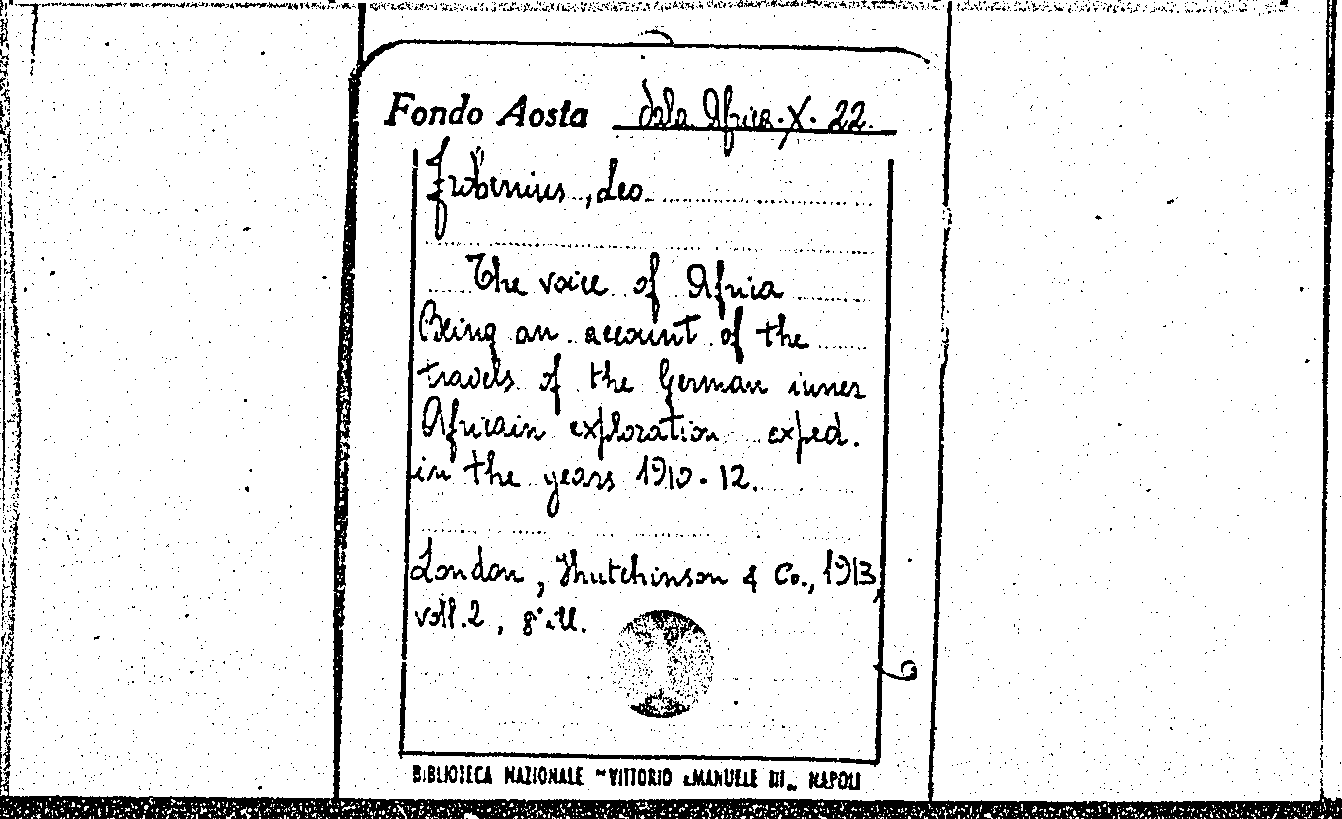 Fondo Aosta Sala Africa. X. 22.
Frobenius, Leo.
The voice of Africa
Being an account of the
travels of the German inner
African exploration exped.
in the years 1910-12.
London, Hutchinson & Co., 1913,
voll. 2, 8° ill.
BIBLIOTECA NAZIONALE "VITTORIO EMANUELE III" NAPOLI